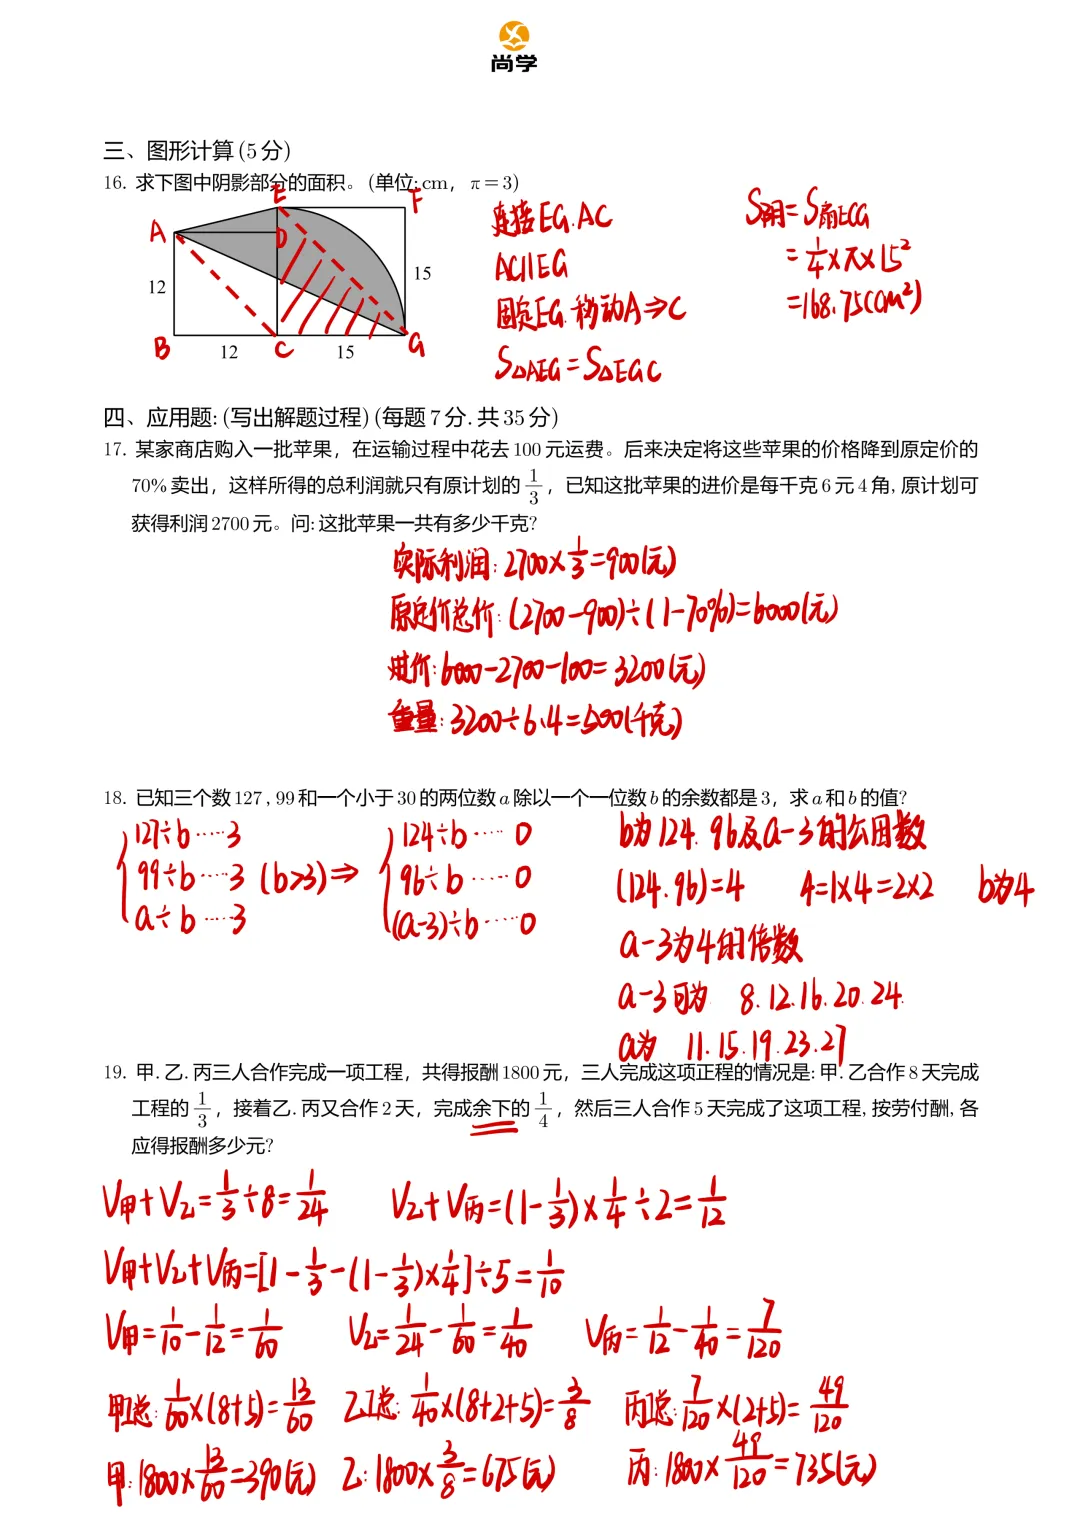 尚学
三、图形计算 (5 分)
16. 求下图中阴影部分的面积。 (单位: cm, π = 3)
E
F
A
D
15
12
B
12
C
15
G
连接EG.AC
AC∥EG
固定EG.移动A⇒C
S△AEG=S△EGC
S阴=S扇ECG
=1/4×π×15²
=168.75(cm²)
四、应用题: (写出解题过程) (每题 7 分. 共 35 分)
17. 某家商店购入一批苹果，在运输过程中花去 100 元运费。后来决定将这些苹果的价格降到原定价的
70% 卖出，这样所得的总利润就只有原计划的 1/3，已知这批苹果的进价是每千克 6 元 4 角, 原计划可
获得利润 2700 元。问: 这批苹果一共有多少千克?
实际利润: 2700×1/3=900(元)
原定价总价: (2700-900)÷(1-70%)=6000(元)
进价: 6000-2700-100=3200(元)
重量: 3200÷6.4=500(千克)
18. 已知三个数 127 , 99 和一个小于 30 的两位数 a 除以一个一位数 b 的余数都是 3，求 a 和 b 的值?
127÷b……3
99÷b…3 (b>3)⇒
a÷b……3
124÷b……0
96÷b……0
(a-3)÷b……0
b为124.96及a-3的公因数
(124.96)=4 4=1×4=2×2 b为4
a-3为4的倍数
a-3可为 8.12.16.20.24.
a为 11.15.19.23.27
19. 甲. 乙. 丙三人合作完成一项工程，共得报酬 1800 元，三人完成这项正程的情况是: 甲. 乙合作 8 天完成
工程的 1/3，接着乙. 丙又合作 2 天，完成余下的 1/4，然后三人合作 5 天完成了这项工程, 按劳付酬, 各
应得报酬多少元?
V甲+V乙=1/3÷8=1/24 V乙+V丙=(1-1/3)×1/4÷2=1/12
V甲+V乙+V丙=[1-1/3-(1-1/3)×1/4]÷5=1/10
V甲=1/10-1/12=1/60 V乙=1/24-1/60=1/40 V丙=1/12-1/40=7/120
甲工总: 1/60×(8+5)=13/60 乙工总: 1/40×(8+2+5)=3/8 丙工总: 7/120×(2+5)=49/120
甲: 1800×13/60=390(元) 乙: 1800×3/8=675(元) 丙: 1800×49/120=735(元)